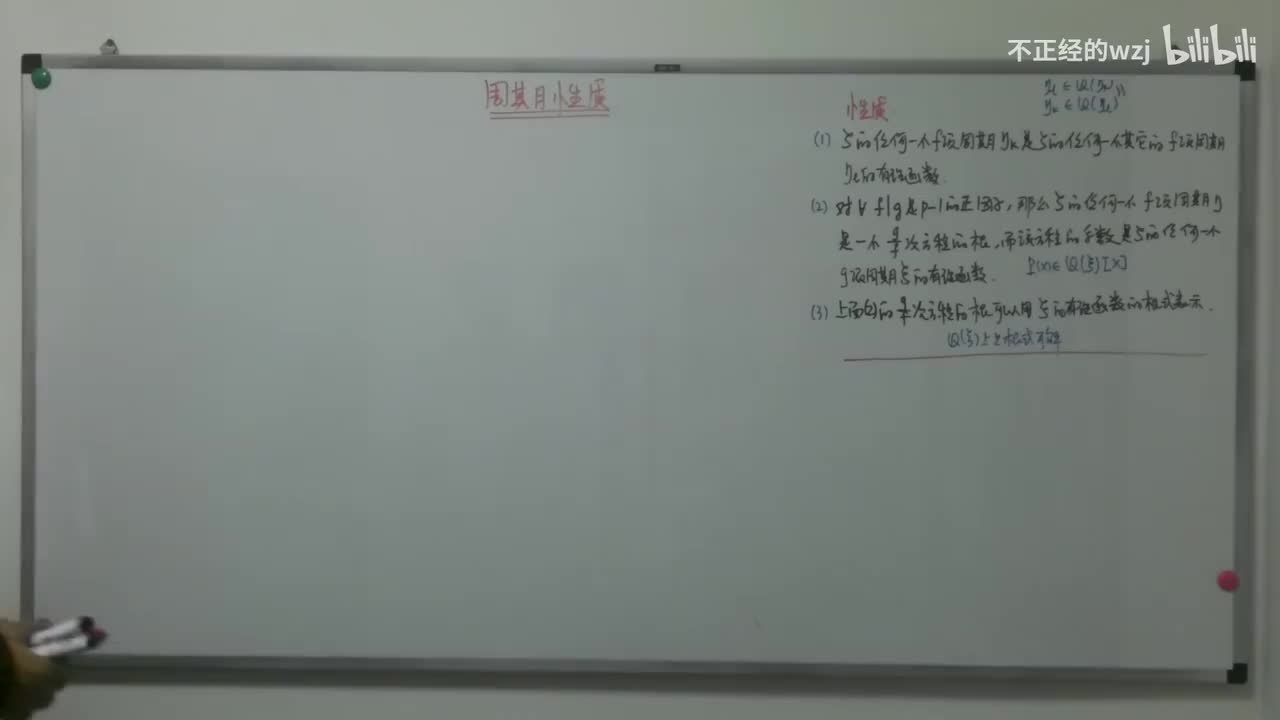 不正经的wzj bilibili
周期小性质
性质
η_l ∈ Q(η_k)
η_k ∈ Q(η_l)
(1) ζ的任何一个f项周期η_k是ζ的任何一个其它的f项周期
η_l的有理函数.
(2) 对∀ f|g是p-1的正因子,那么ζ的任何一个f项周期η
是一个g/f次方程的根,而该方程的系数是ζ的任何一个
g项周期ξ的有理函数. P(x)∈Q(ξ)[X]
(3) 上面(2)的g/f次方程的根可以用ξ的有理函数的根式表示.
Q(ξ)上之根式可解